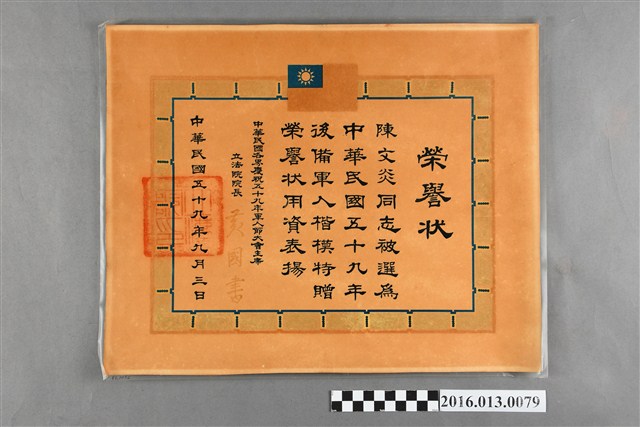 榮譽狀
陳文炎同志被選為
中華民國五十九年
後備軍人楷模特贈
榮譽狀用資表揚
中華民國各界慶祝五十九年軍人節大會主席
立法院院長
黃國書
中華民國五十九年九月三日
2016.013.0079